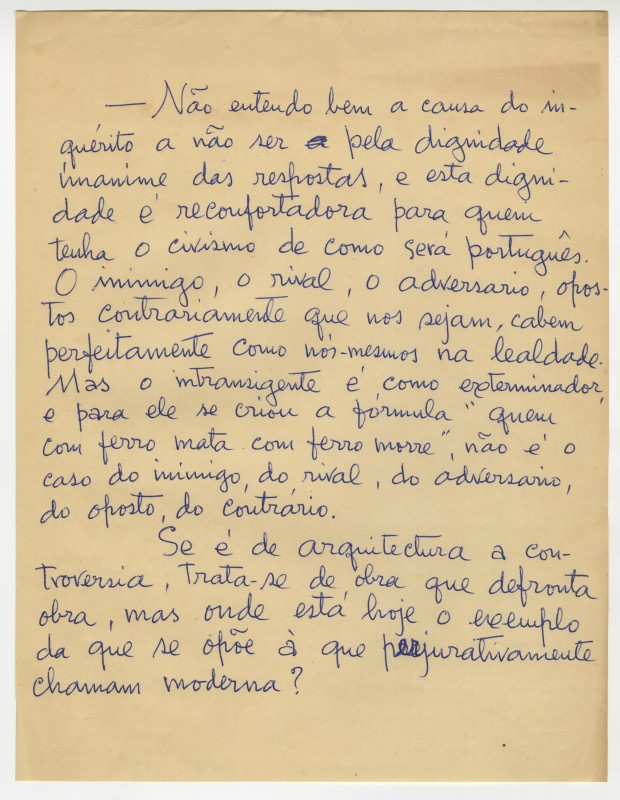 — Não entendo bem a causa do in-
quérito a não ser pela dignidade
unanime das respostas, e esta digni-
dade é reconfortadora para quem
tenha o civismo de como será português.
O inimigo, o rival, o adversario, opos-
tos contrariamente que nos sejam, cabem
perfeitamente como nós-mesmos na lealdade.
Mas o intransigente é como exterminador,
e para ele se criou a fórmula "quem
com ferro mata com ferro morre", não é o
caso do inimigo, do rival, do adversario,
do oposto, do contrário.
Se é de arquitectura a con-
troversia, trata-se de obra que defronta
obra, mas onde está hoje o exemplo
da que se opõe à que perjurativamente
chamam moderna?